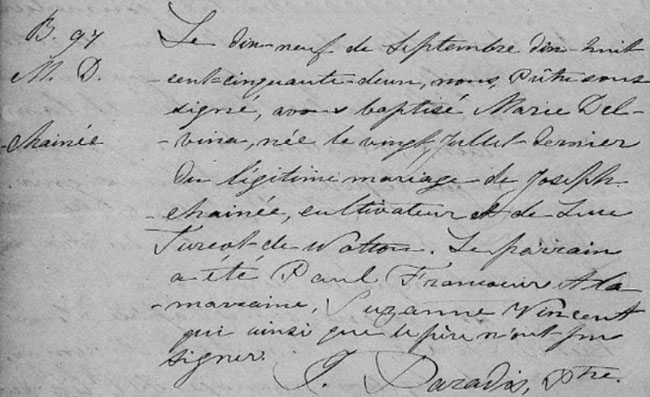 B. 97
M. D.
Chainée
Le dix-neuf de Septembre dix-huit
-cent-cinquante-deux, nous, Prêtre sous
signé, avons baptisé Marie Del-
-vina, née le vingt Juillet dernier
du légitime mariage de Joseph
chainée, cultivateur et de Luce
Turcot de Wotton. Le parrain
a été Paul Francoeur et la
marraine, Suzanne Vincent
qui ainsi que le père n'ont pu
signer.
J. Paradis, Ptre.